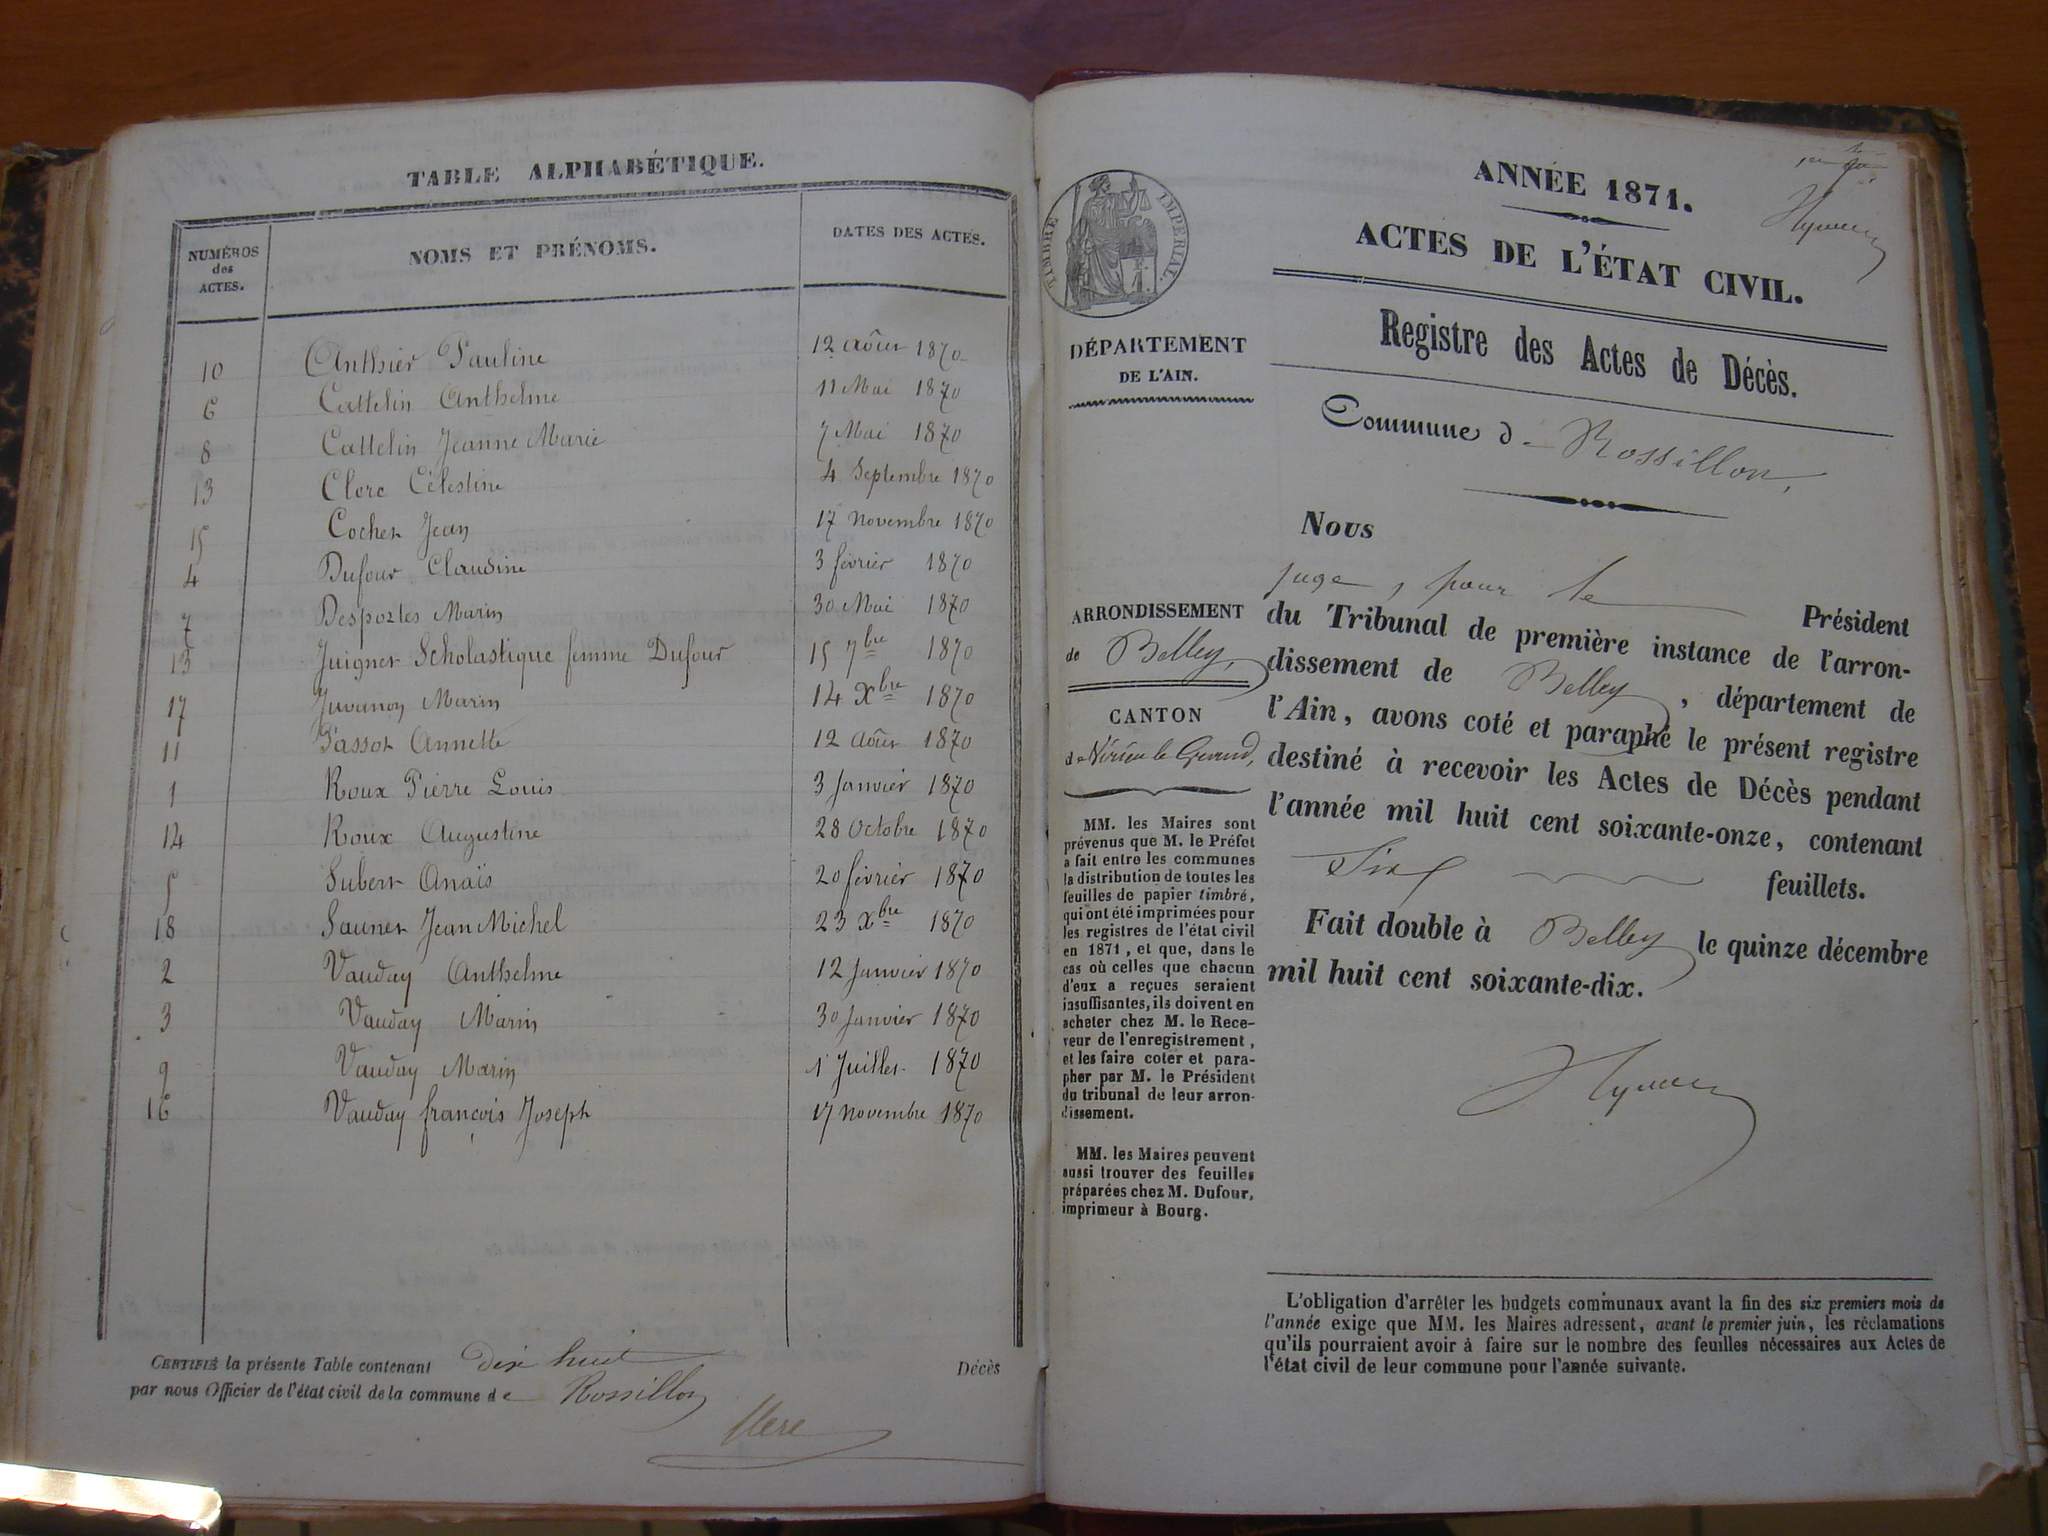 TABLE ALPHABÉTIQUE.
NUMÉROS des ACTES. NOMS ET PRÉNOMS. DATES DES ACTES.
10 Anthier Pauline 12 Août 1870
6 Cattelin Anthelme 11 Mai 1870
8 Cattelin Jeanne Marie 7 Mai 1870
13 Clerc Célestine 4 Septembre 1870
15 Cochet Jean 17 Novembre 1870
4 Dufour Claudine 3 février 1870
7 Desportes Marin 30 Mai 1870
13 Juignet Scholastique femme Dufour 15 7bre 1870
17 Juvanon Marin 14 Xbre 1870
11 Passot Annette 12 Août 1870
1 Roux Pierre Louis 3 Janvier 1870
14 Roux Augustine 28 Octobre 1870
5 Subert Anaïs 20 février 1870
18 Saunet Jean Michel 23 Xbre 1870
2 Vauday Anthelme 12 Janvier 1870
3 Vauday Marin 30 Janvier 1870
9 Vauday Marin 1 Juillet 1870
16 Vauday françois Joseph 17 Novembre 1870
CERTIFIÉ la présente Table contenant dix huit Décès
par nous Officier de l'état civil de la commune de Rossillon
TIMBRE IMPÉRIAL
DÉPARTEMENT
DE L'AIN.
ARRONDISSEMENT
de Belley,
CANTON
de Virieu le Grand,
MM. les Maires sont
prévenus que M. le Préfet
a fait entre les communes
la distribution de toutes les
feuilles de papier timbré,
qui ont été imprimées pour
les registres de l'état civil
en 1871, et que, dans le
cas où celles que chacun
d'eux a reçues seraient
insuffisantes, ils doivent en
acheter chez M. le Rece-
veur de l'enregistrement,
et les faire coter et para-
pher par M. le Président
du tribunal de leur arron-
dissement.
MM. les Maires peuvent
aussi trouver des feuilles
préparées chez M. Dufour,
imprimeur à Bourg.
ANNÉE 1871.
ACTES DE L'ÉTAT CIVIL.
Registre des Actes de Décès.
Commune de Rossillon,
Nous
juge, pour le Président
du Tribunal de première instance de l'arron-
dissement de Belley, département de
l'Ain, avons coté et paraphé le présent registre
destiné à recevoir les Actes de Décès pendant
l'année mil huit cent soixante-onze, contenant
Six feuillets.
Fait double à Belley le quinze décembre
mil huit cent soixante-dix.
L'obligation d'arrêter les budgets communaux avant la fin des six premiers mois de
l'année exige que MM. les Maires adressent, avant le premier juin, les réclamations
qu'ils pourraient avoir à faire sur le nombre des feuilles nécessaires aux Actes de
l'état civil de leur commune pour l'année suivante.